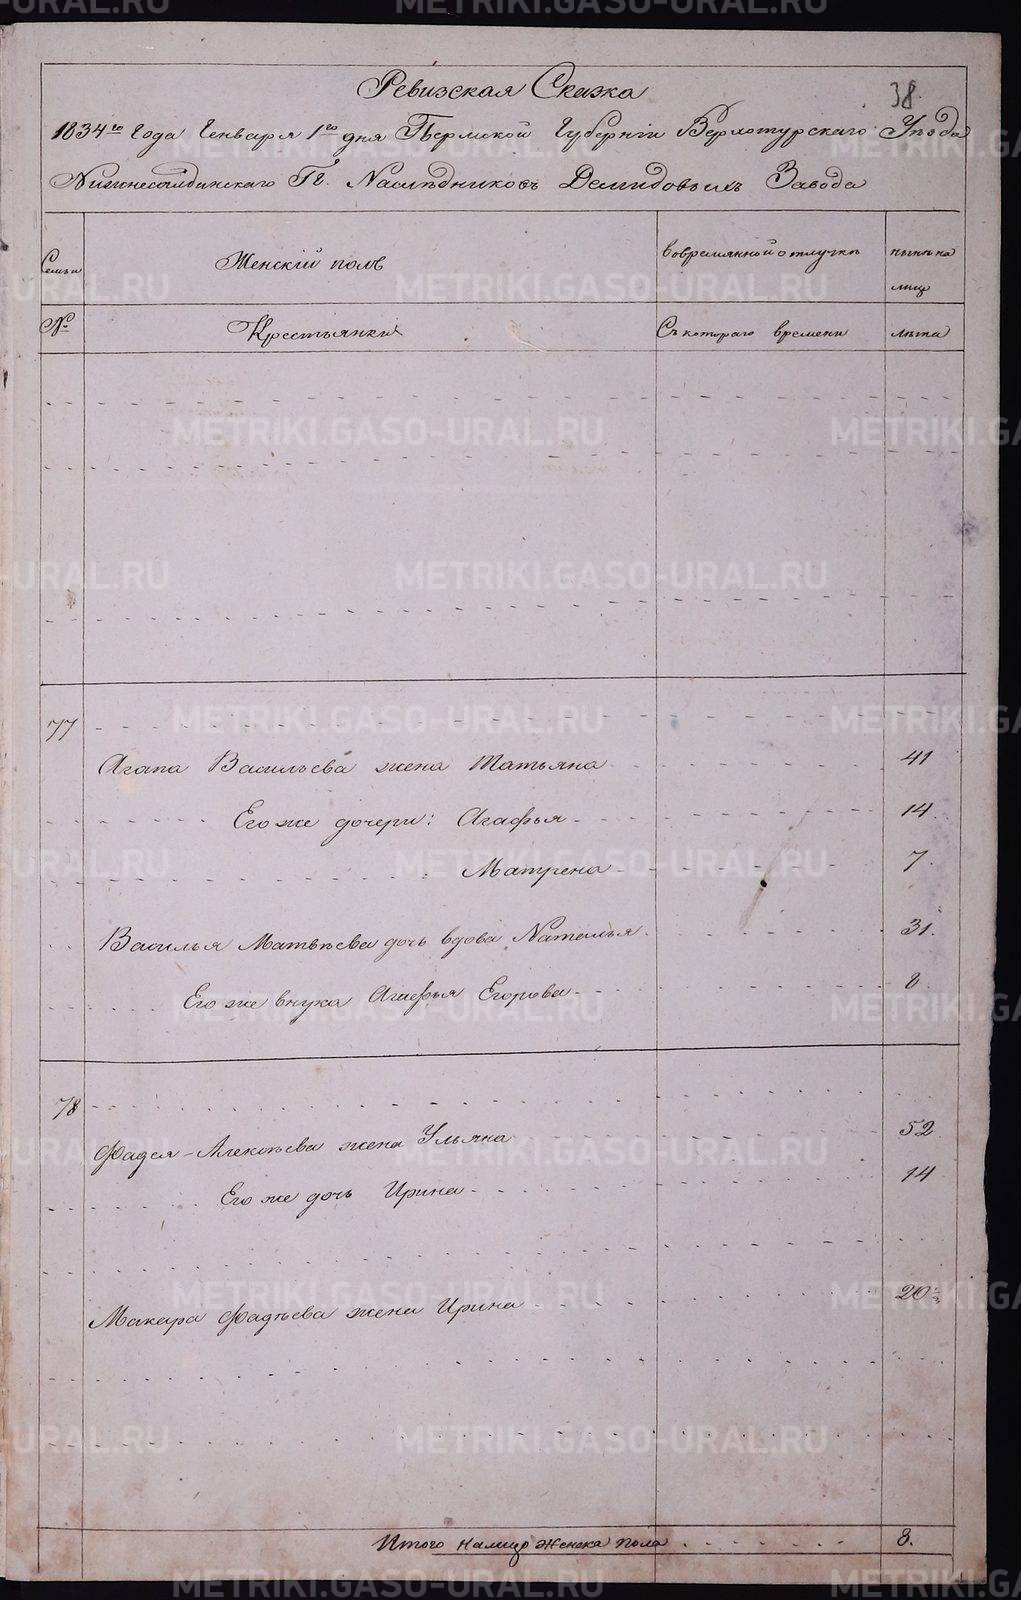 38.
Ревизская Сказка
1834го Года Генваря 1го дня Пермской Губернiи Верхотурскаго Уѣзда
Нижнесалдинскаго Гг. Наслѣдниковъ Демидовыхъ Завода
Семьи
Женскiй полъ
во временной отлучкѣ
нынѣ на
лицо
№
Крестьянки
Съ котораго времени
лѣта
77
Агапа Васильева жена Татьяна 41
Его же дочери: Агафья 14.
Матрена 7.
Василья Матвѣева дочь вдова Наталья 31.
Его же внука Агафья Егорова 8.
78
Фадея Алексѣева жена Ульяна 52.
Его же дочь Ирина 14
Макара Фадѣева жена Ирина 20
Итого налицо женска пола 8.
METRIKI.GASO-URAL.RU